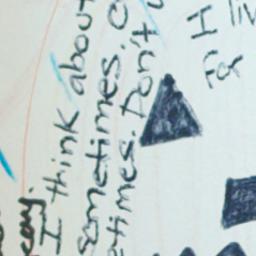 I think about
sometimes.
etimes. Don't
H liv
For